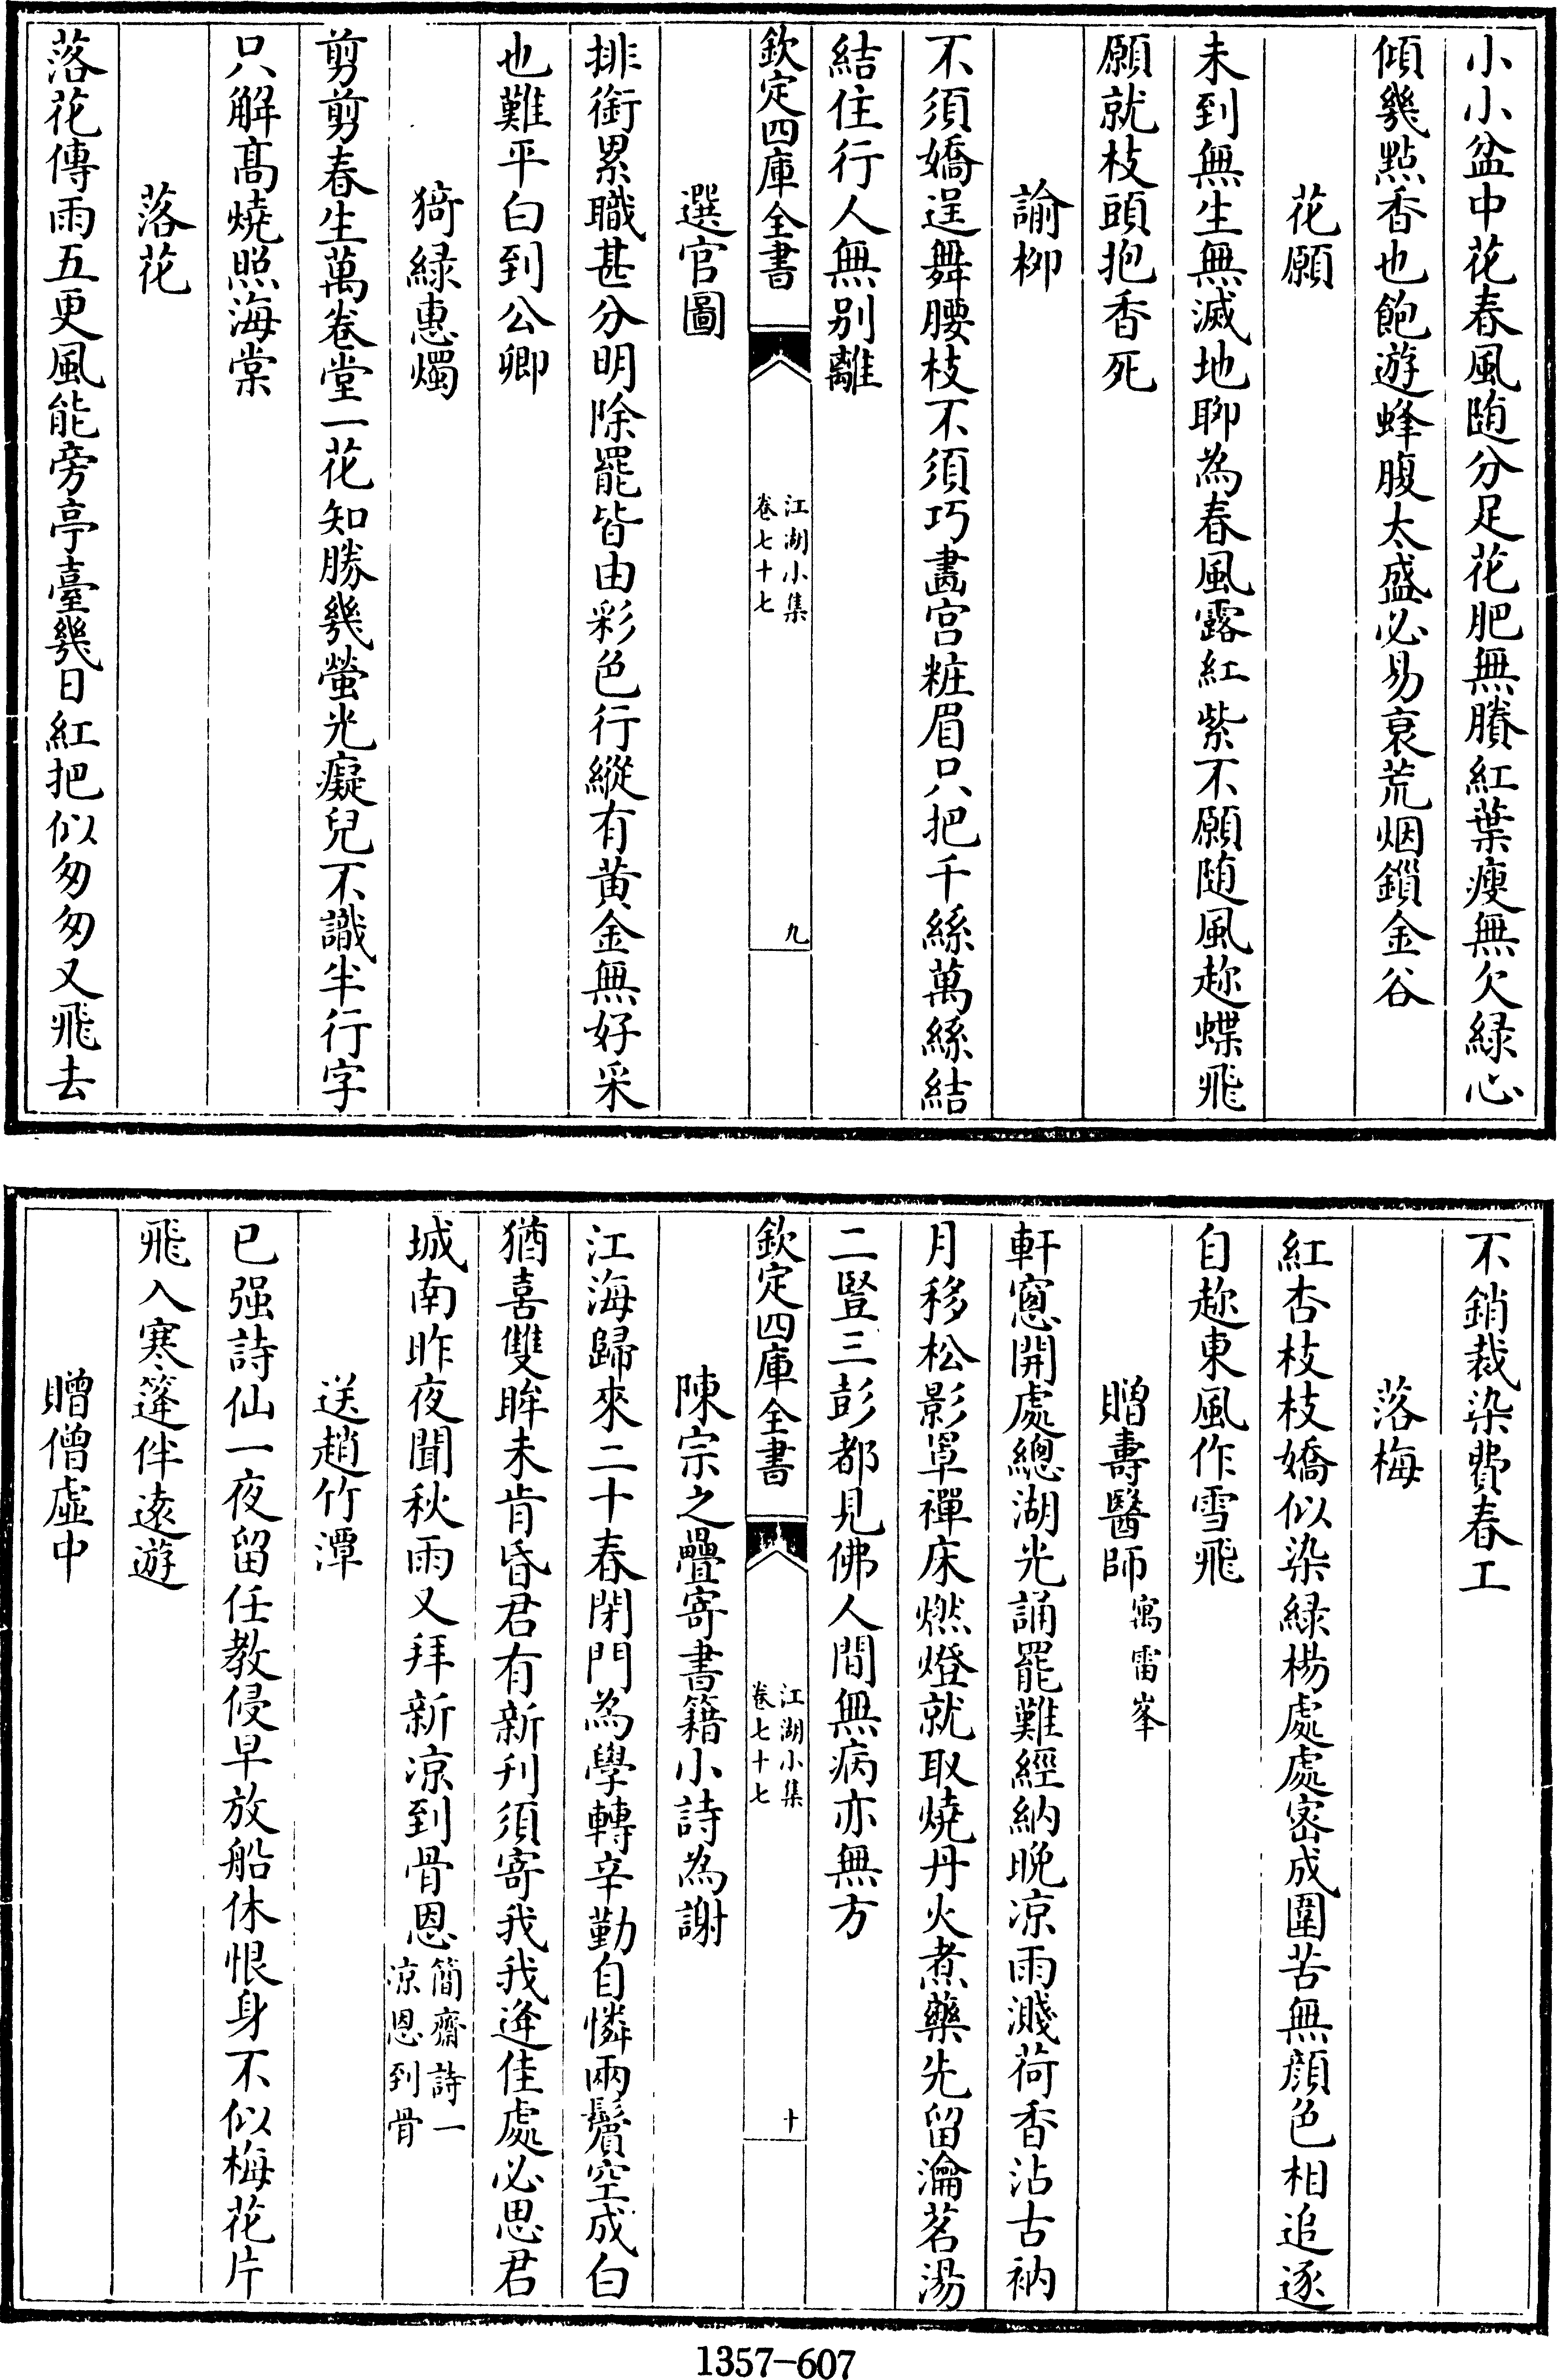 小小盆中花春風随分足花肥無賸紅葉瘦無欠緑心
傾幾點香也飽遊蜂腹太盛必易衰荒烟鎻金谷
花願
未到無生無滅地聊為春風露紅紫不願随風趂蝶飛
願就枝頭抱香死
諭栁
不須嬌逞舞腰枝不須巧畫宫粧眉只把千絲萬絲結
結住行人無别離
欽定四庫全書
江湖小集
卷七十七
九
選官圖
排銜累職甚分明除罷皆由彩色行縱有黄金無好采
也難平白到公卿
猗緑惠燭
剪剪春生萬卷堂一花知勝幾螢光癡兒不識半行字
只解髙燒照海棠
落花
落花傳雨五更風能旁亭臺幾日紅把似匆匆又飛去
不銷裁染費春工
落梅
紅杏枝枝嬌似染緑楊處處宻成圍苦無顔色相追逐
自趂東風作雪飛
贈壽醫師寓雷峯
軒窻開處總湖光誦罷難經納晚凉雨濺荷香沾古衲
月移松影罩禪床燃燈就取燒丹火煮藥先留瀹茗湯
二豎三彭都見佛人間無病亦無方
欽定四庫全書
江湖小集
卷七十七
十
陳宗之疊寄書籍小詩為謝
江海歸來二十春閉門為學轉辛勤自憐兩鬢空成白
猶喜雙眸未肯昏君有新刋須寄我我逄佳處必思君
城南昨夜聞秋雨又拜新凉到骨恩簡齋詩一凉恩到骨
送趙竹潭
已强詩仙一夜留任教侵早放船休恨身不似梅花片
飛入寒篷伴逺遊
贈僧虚中
1357-607